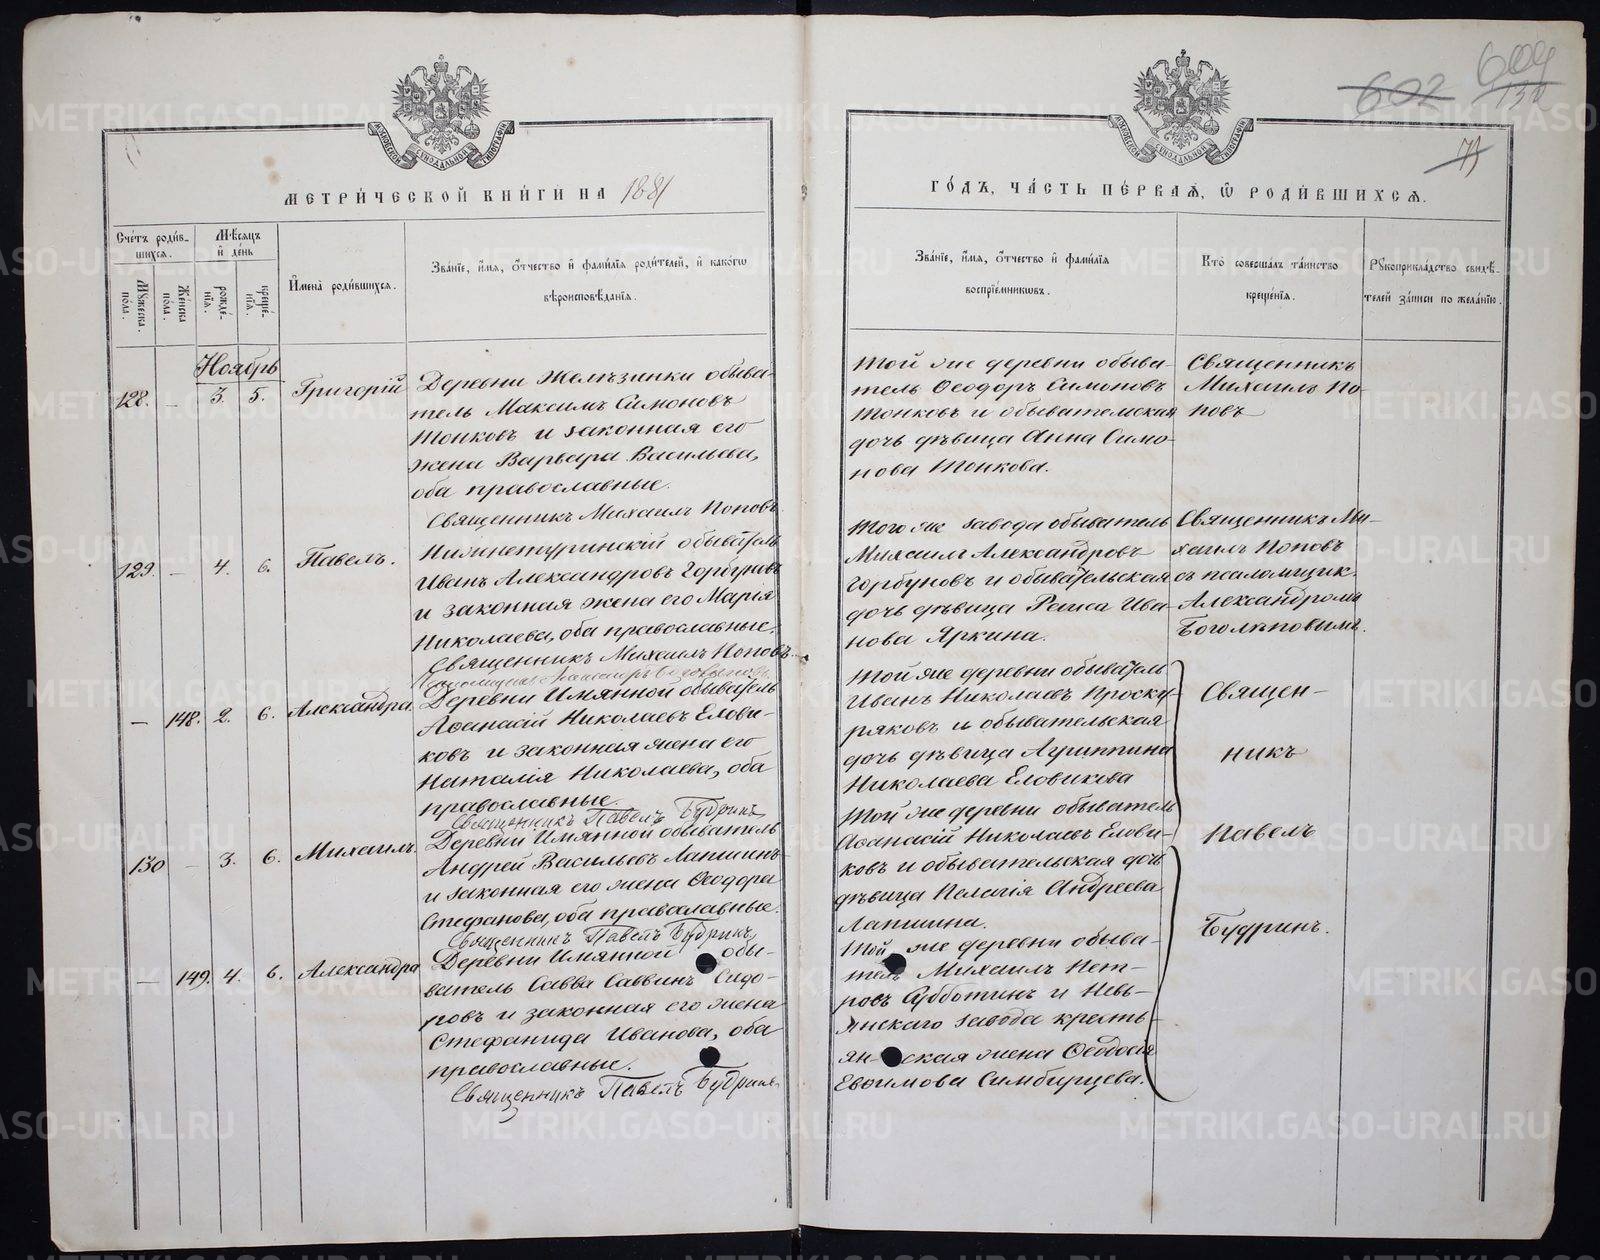 МЕТРИ́ЧЕСКОЙ КНИ́ГИ НА 1881
Сче́тъ роди́в-
шихся.
Мꙋ́жеска по́ла.
Же́нска по́ла.
Мѣ́сяцъ
и҆ де́нь
рожде́-
нїѧ.
креще́-
нїѧ.
И҆мена̀ роди́вшихся.
Зва́нїе, и҆́мя, ѻ҆́тчество и҆ фами́лїя роди́телей, и҆ како́гѡ
вѣроисповѣ́данїя.
Ноябрь
128. — 3. 5. Григорій
Деревни Желѣзинки обыва-
тель Максимъ Симоновъ
Тонковъ и законная его
жена Варвара Васильева,
оба православные.
Священникъ Михаилъ Поповъ
129. — 4. 6. Павелъ.
Нижнетуринскій обыватель
Иванъ Александровъ Горбуновъ
и законная жена его Марія
Николаева, оба православные.
Священникъ Михаилъ Поповъ.
— 148. 2. 6. Александра.
Деревни Имянной обыватель
Аѳанасій Николаевъ Елови-
ковъ и законная жена его
Наталія Николаева, оба
православные.
Священникъ Павелъ Будринъ
130 — 3. 6. Михаилъ.
Деревни Имянной обыватель
Андрей Васильевъ Лапшинъ
и законная его жена Ѳеодора
Стефанова, оба православные.
Священникъ Павелъ Будринъ
— 149. 4. 6. Александра
Деревни Имянной обы-
ватель Савва Саввинъ Сидо-
ровъ и законная его жена
Стефанида Иванова, оба
православные.
Священникъ Павелъ Будринъ
602 604
130
77
ГО́ДЪ, ЧА́СТЬ ПЕ́РВАЯ, Ѽ РОДИ́ВШИХСЯ.
Зва́нїе, и҆́мя, ѻ҆́тчество и҆ фами́лїя
воспрїе́мникѡвъ.
Кто̀ соверша́лъ та́инство
креще́нїя.
Рꙋкоприкла́дство свидѣ́-
телей за́писи по жела́нїю.
Той же деревни обыва-
тель Ѳеодоръ Симоновъ
Тонковъ и обывательская
дочь дѣвица Анна Симо-
нова Тонкова.
Священникъ
Михаилъ По-
повъ
Того же завода обыватель
Михаилъ Александровъ
Горбуновъ и обывательская
дочь дѣвица Раиса Ива-
нова Яркина.
Священникъ Ми-
хаилъ Поповъ
съ псаломщик.
Александромъ
Боголѣповымъ.
Той же деревни обыватель
Иванъ Николаевъ Проску-
ряковъ и обывательская
дочь дѣвица Агриппина
Николаева Еловикова
Той же деревни обыватель
Аѳанасій Николаевъ Елови-
ковъ и обывательская дочь
дѣвица Пелагія Андреева
Лапшина.
Той же деревни обыва-
тель Михаилъ Пет-
ровъ Субботинъ и Невь-
янскаго завода кресть-
янская жена Ѳеодосія
Евѳимова Симбирцева.
Священ-
никъ
Павелъ
Будринъ.